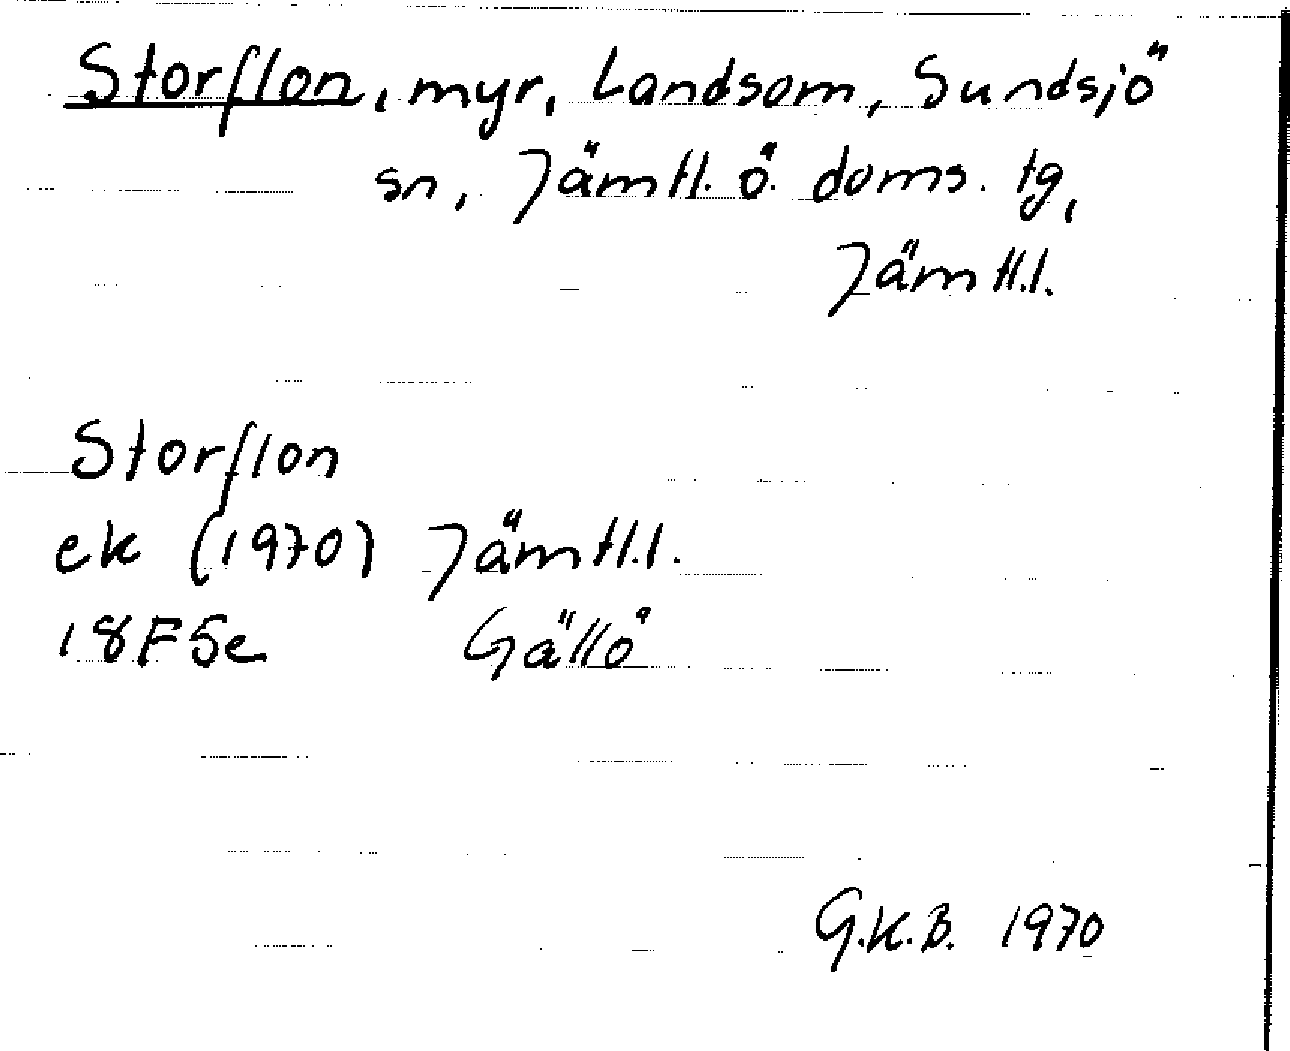 Storflon, myr, Landsom, Sundsjö
sn, Jämtl. ö. doms. tg,
Jämtl.l.
Storflon
ek (1970) Jämtl.l.
18F5e Gällö
G.K.B. 1970